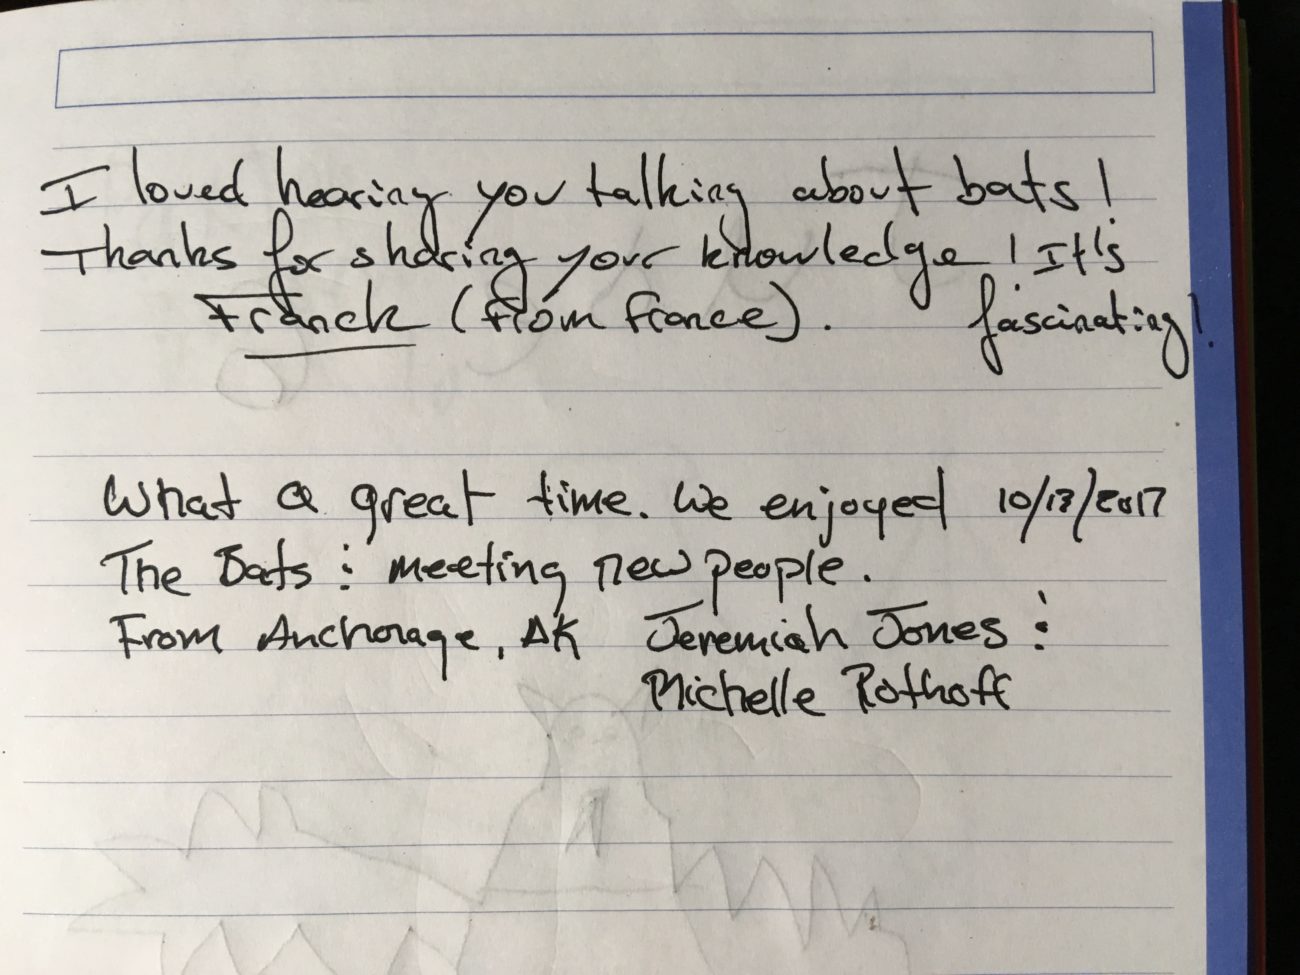 I loved hearing you talking about bats!
Thanks for sharing your knowledge! It's
fascinating!
Franck (from France).
What a great time. We enjoyed 10/13/2017
The Bats & meeting new people.
From Anchorage, AK Jeremiah Jones &
Michelle Pothoff